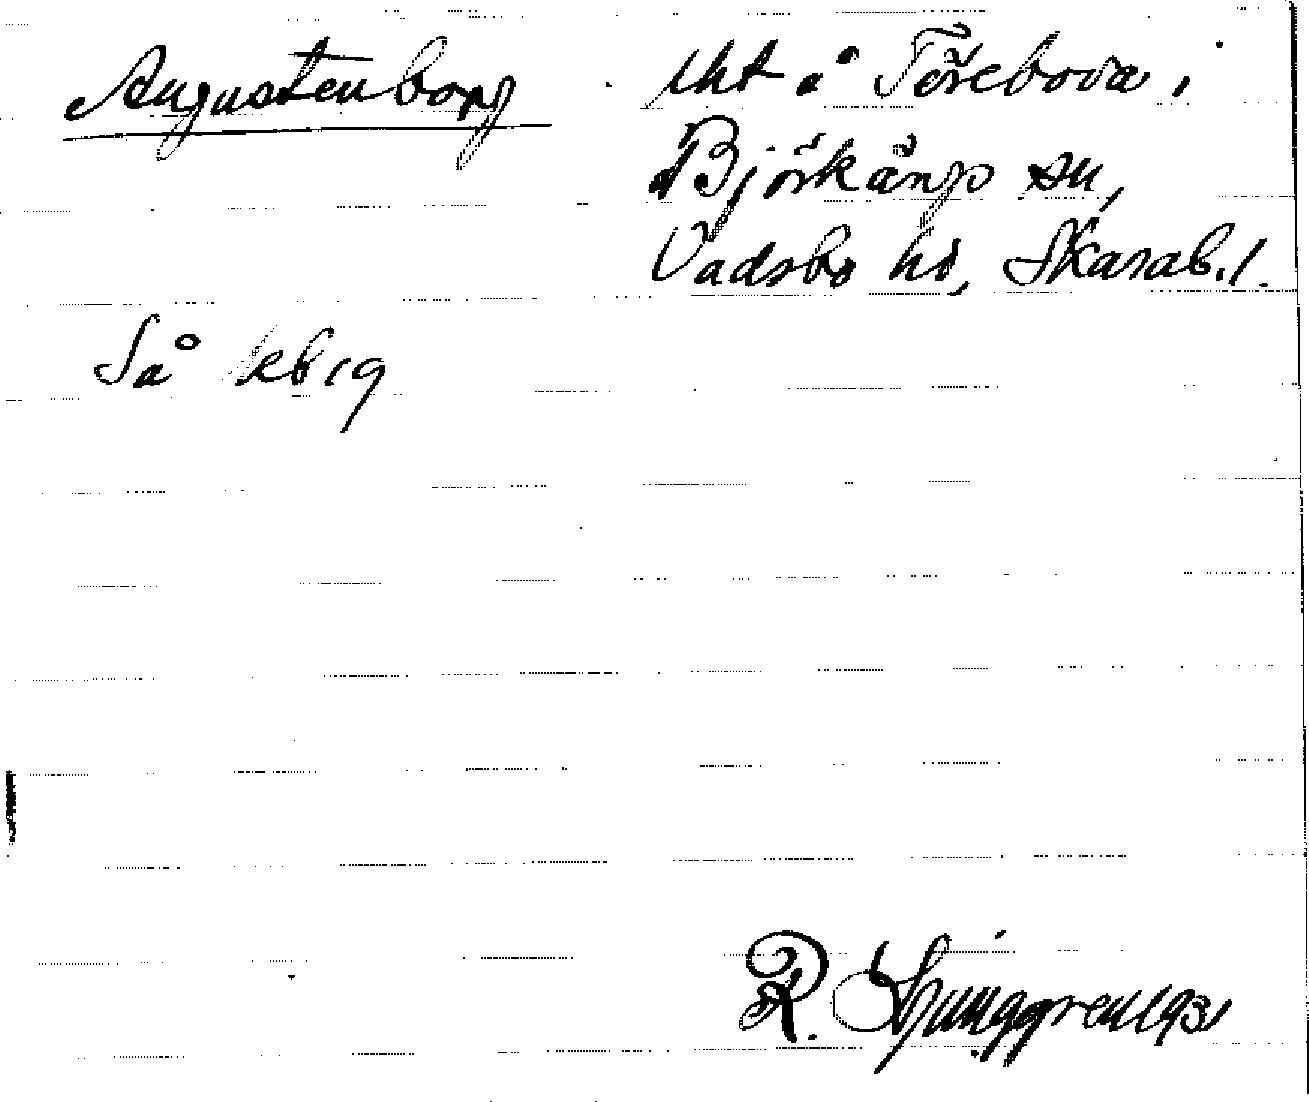 Augustenborg
lht å Töreboda,
Björkängs sn,
Vadsbo hd, Skarab. l.
Så kb 19
R. Ljunggren 1931